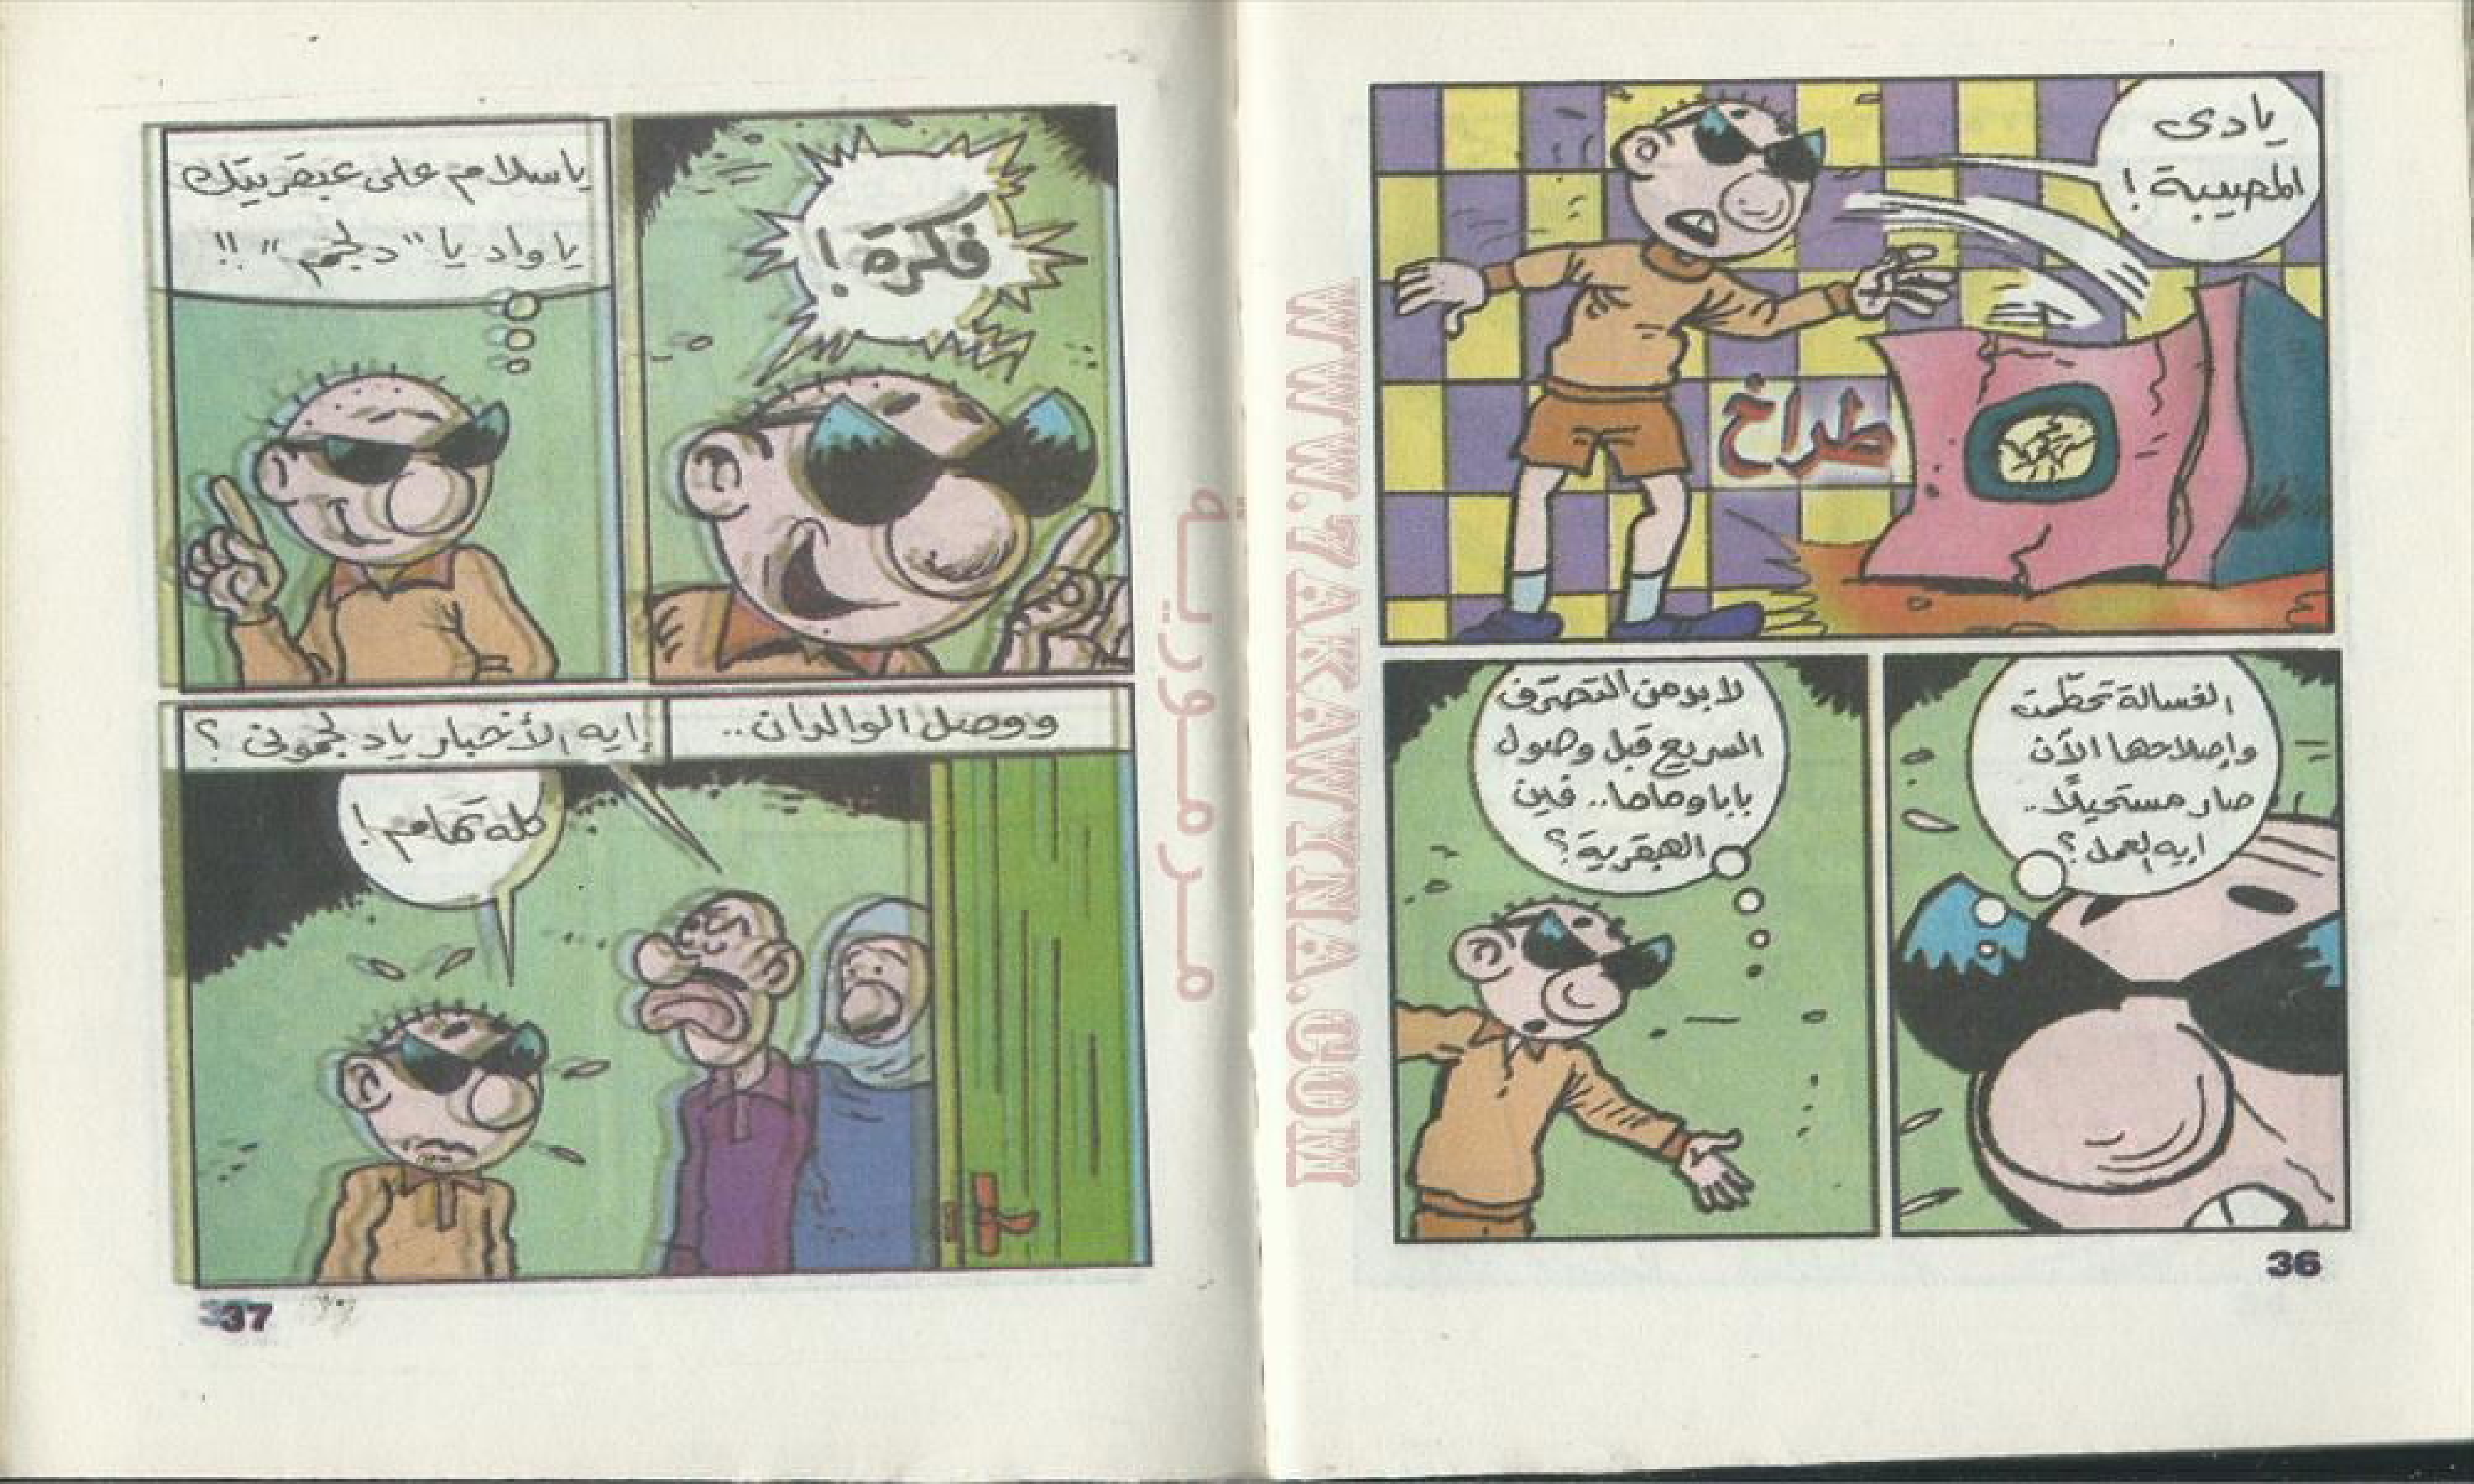 يادى
المصيبة!
طراخ
الغسالة تحطّمت
وإصلاحها الآن
صار مستحيلًا..
ايه العمل؟
لابد من التصرّف
السريع قبل وصول
بابا وماما.. فين
العبقرية؟
36
WWW.ZAKAWATNA.COM
مرمورية
فكرة!
ياسلام على عبقريتك
يا واد يا "دلجم"!!
ووصل الوالدان..
إيه الأخبار ياد لجمونى؟
كله تمام!
37